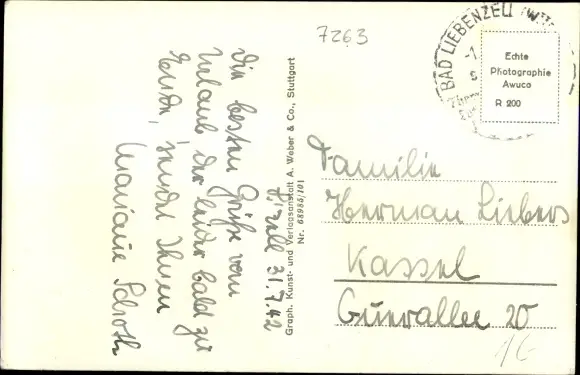 7263
BAD LIEBENZELL (Wü
Echte
Photographie
Awuco
R 200
Hirzell 31.7.42
Die besten Grüße vom
Urlaub der leider bald zu
Ende, sendet Ihnen
Marianne Schroth
Graph. Kunst- und Verlagsanstalt A. Weber & Co., Stuttgart
Nr. 68985/101
Familie
Herman Liebers
Kassel
Guerallee 20